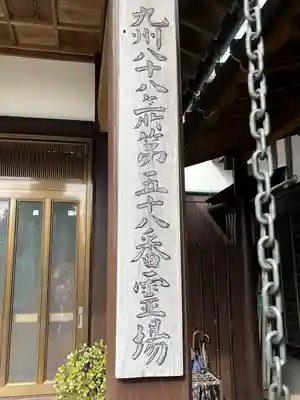 九州八十八ヶ所第五十八番霊場